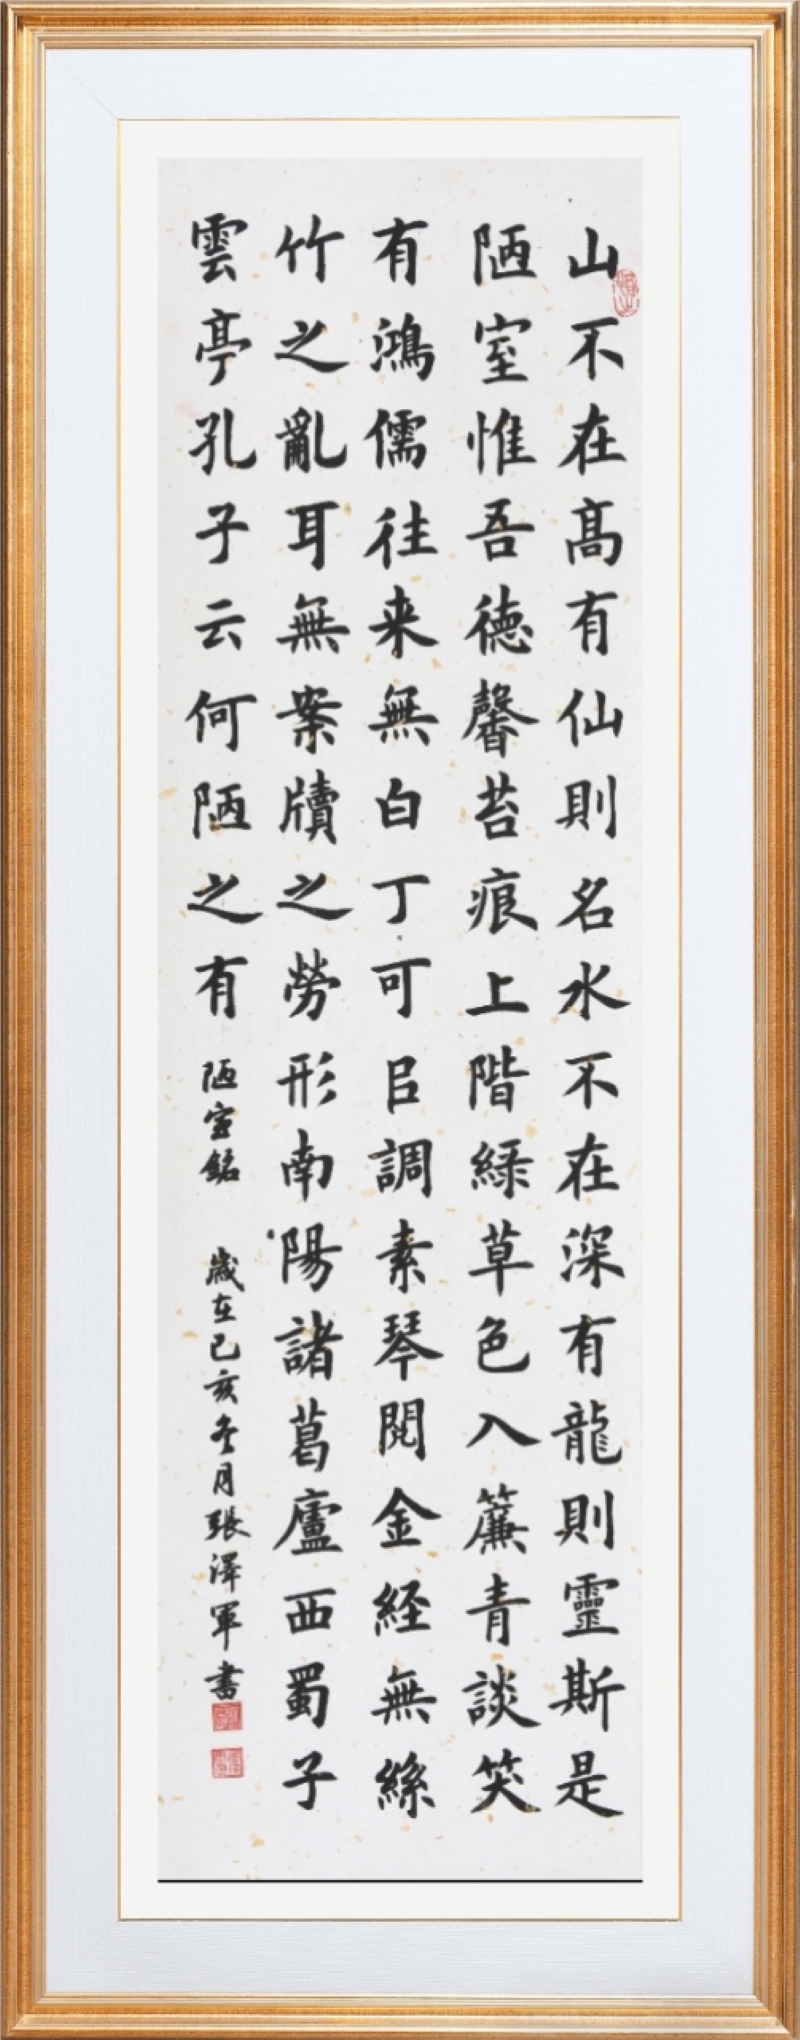 山不在高有仙則名水不在深有龍則靈斯是
陋室惟吾德馨苔痕上階緑草色入簾青談笑
有鴻儒往来無白丁可㠯調素琴閱金経無絲
竹之亂耳無案牘之勞形南陽諸葛廬西蜀子
雲亭孔子云何陋之有 陋室銘 歲在己亥冬月張澤軍書